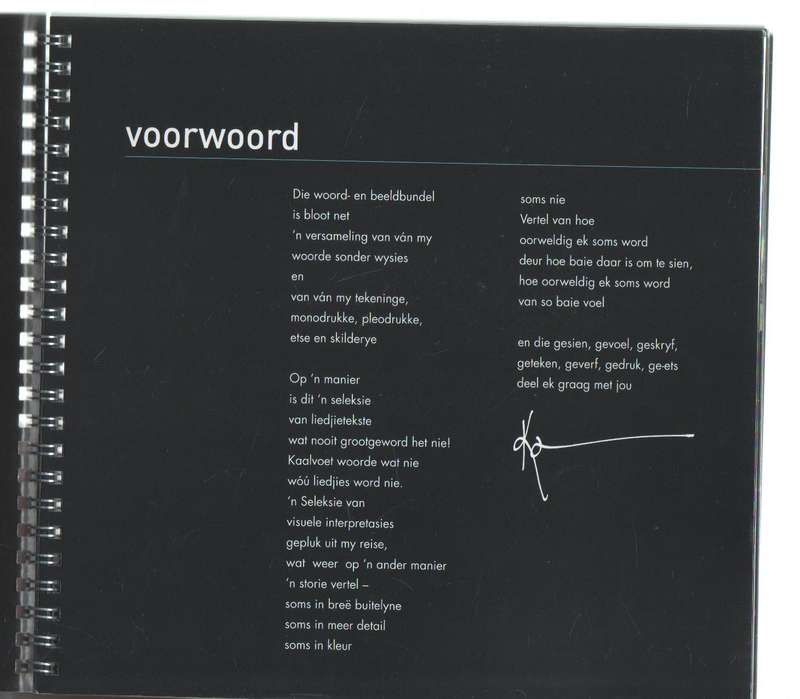 voorwoord
Die woord- en beeldbundel
is bloot net
'n versameling van ván my
woorde sonder wysies
en
van ván my tekeninge,
monodrukke, pleodrukke,
etse en skilderye
Op 'n manier
is dit 'n seleksie
van liedjietekste
wat nooit grootgeword het nie!
Kaalvoet woorde wat nie
wóú liedjies word nie.
'n Seleksie van
visuele interpretasies
gepluk uit my reise,
wat weer op 'n ander manier
'n storie vertel –
soms in breë buitelyne
soms in meer detail
soms in kleur
soms nie
Vertel van hoe
oorweldig ek soms word
deur hoe baie daar is om te sien,
hoe oorweldig ek soms word
van so baie voel
en die gesien, gevoel, geskryf,
geteken, geverf, gedruk, ge-ets
deel ek graag met jou